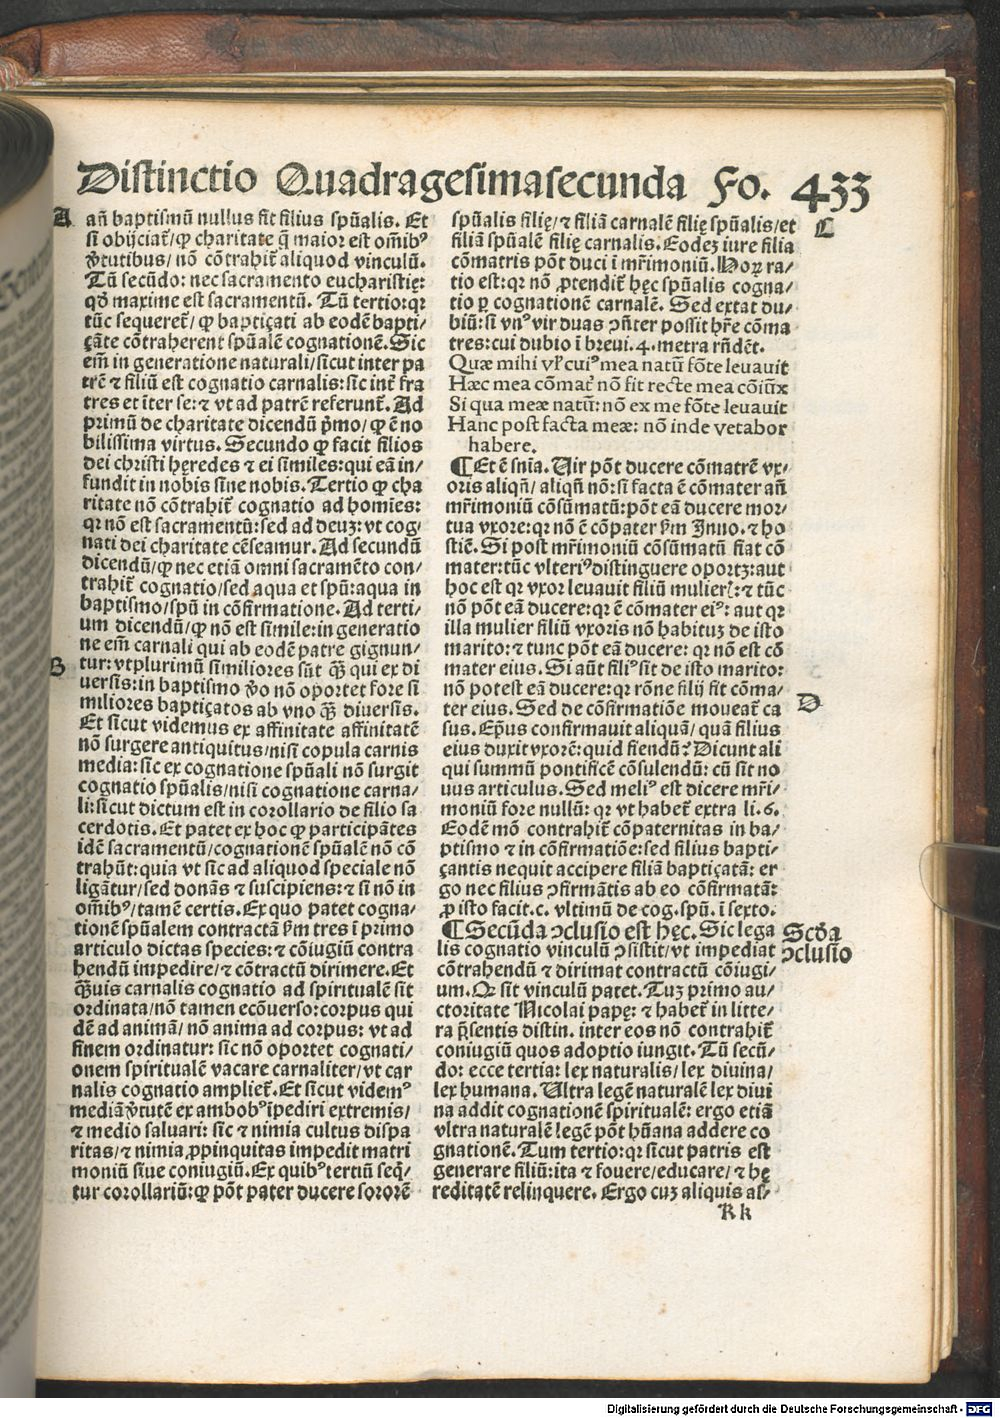 Distinctio Quadragesimasecunda Fo. 433
A
añ baptismũ nullus fit filius spũalis. Et
si obijciat̃/ꝙ charitate q̃ maior est om̃ibꝰ
ꝟtutibus/nõ cõtrahit̃ aliquod vinculũ.
Tũ secũdo: nec sacramento eucharistię:
qđ maxime est sacramentũ. Tũ tertio:qꝛ
tũc sequeret̃/ꝙ baptiçati ab eodẽ bapti/
çãte cõtraherent spũalẽ cognationẽ. Sic
em̃ in generatione naturali/sicut inter pa
trẽ ⁊ filiũ est cognatio carnalis: sic int̃ fra
tres et ĩter se:⁊ vt ad patrẽ referunt̃. Ad
primũ de charitate dicendũ p̃mo/ꝙ ẽ no
bilissima virtus. Secundo ꝙ facit filios
dei christi hęredes ⁊ ei similes:qui eã in/
fundit in nobis sine nobis. Tertio ꝙ cha
ritate nõ cõtrahit̃ cognatio ad homĩes:
qꝛ nõ est sacramentũ: sed ad deuꝫ: vt cog
nati dei charitate cẽseamur. Ad secundũ
dicendũ/ꝙ nec etiã omni sacramẽto con/
trahit̃ cognatio/sed aqua et spũ:aqua in
baptismo/spũ in cõfirmatione. Ad terti/
um dicendũ/ꝙ nõ est simile:in generatio
ne em̃ carnali qui ab eodẽ patre gignun/
B
tur: vtplurimũ similiores sũt q̃ꝫ qui ex di
uersis:in baptismo ꝟo nõ oportet fore si
miliores baptiçatos ab vno q̃ꝫ diuersis.
Et sicut videmus ex affinitate affinitatẽ
nõ surgere antiquitus/nisi copula carnis
media: sic ex cognatione spũali nõ surgit
cognatio spũalis/nisi cognatione carna/
li:sicut dictum est in corollario de filio sa
cerdotis. Et patet ex hoc ꝙ participãtes
idẽ sacramentũ/cognationẽ spũalẽ nõ cõ
trahũt:quia vt sic ad aliquod speciale nõ
ligãtur/sed donãs ⁊ suscipiens:⁊ si nõ in
om̃ibꝰ/tamẽ certis. Ex quo patet cogna/
tionẽ spũalem contractã ẜm tres ĩ primo
articulo dictas species:⁊ cõiugiũ contra
hendũ impedire/⁊ cõtractũ dirimere. Et
q̃ꝫuis carnalis cognatio ad spiritualẽ sit
ordinata/nõ tamen ecõuerso:corpus qui
dẽ ad animã/nõ anima ad corpus: vt ad
finem ordinatur: sic nõ oportet cognati/
onem spiritualẽ vacare carnaliter/vt car
nalis cognatio ampliet̃. Et sicut videmꝰ
mediã ꝟtutẽ ex ambobꝰ ĩpediri extremis/
⁊ medio saluari: sic ⁊ nimia cultus dispa
ritas/⁊ nimia ꝓpinquitas impedit matri
moniũ siue coniugiũ. Ex quibꝰ tertiũ seq̃/
tur corollariũ:ꝙ põt pater ducere sororẽ
spũalis filię/⁊ filiã carnalẽ filię spũalis/et
C
filiã spũalẽ filię carnalis. Eodeꝫ iure filia
cõmatris põt duci ĩ mr̃imoniũ. Hoꝝ ra/
tio est:qꝛ nõ ꝓtendit̃ hęc spũalis cogna/
tio ꝑ cognationẽ carnalẽ. Sed extat du/
biũ:si vnꝰ vir duas ꝯñter possit hr̃e cõma
tres:cui dubio ĩ breui.4.metra rñdẽt.
Quæ mihi vl̓ cuiꝰ mea natũ fõte leuauit
Hæc mea cõmat̃ nõ fit recte mea cõiũx
Si qua meæ natũ:nõ ex me fõte leuauit
Hanc post facta meæ: nõ inde vetabor
habere.
¶Et ẽ snĩa. Vir põt ducere cõmatrẽ vx/
oris aliqñ/aliqñ nõ:si facta ẽ cõmater añ
mr̃imoniũ cõsũmatũ:põt eã ducere mor/
tua vxore:qꝛ nõ ẽ cõpater ẜm Inno.⁊ ho
stiẽ. Si post mr̃imoniũ cõsũmatũ fiat cõ
mater:tũc vlteriꝰ distinguere oportꝫ:aut
hoc est qꝛ vxor leuauit filiũ mulierĩ:⁊ tũc
nõ põt eã ducere:qꝛ ẽ cõmater eiꝰ: aut qꝛ
illa mulier filiũ vxoris nõ habituꝫ de isto
marito:⁊ tunc põt eã ducere: qꝛ nõ est cõ
mater eius. Si aũt filiꝰ sit de isto marito:
nõ potest eã ducere:qꝛ rõne filij fit cõma/
D
ter eius. Sed de cõfirmatiõe moueat̃ ca
sus. Ep̃us confirmauit aliquã/quã filius
eius duxit vxorẽ:quid fiendũ? Dicunt ali
qui summũ pontificẽ cõsulendũ: cũ sit no
uus articulus. Sed meliꝰ est dicere mr̃i/
moniũ fore nullũ: qꝛ vt habet̃ extra li.6.
Eodẽ mõ contrahit̃ cõpaternitas in ba/
ptismo ⁊ in cõfirmatiõe:sed filius bapti/
çantis nequit accipere filiã baptiçatã: er
go nec filius ꝯfirmãtis ab eo cõfirmatã:
ꝓ isto facit.c. vltimũ de cog.spũ. ĩ sexto.
¶Secũda ꝯclusio est hęc. Sic lega
Scđa
ꝯclusio
lis cognatio vinculũ ꝯsistit/vt impediat
cõtrahendũ ⁊ dirimat contractũ cõiugi/
um. Ꝙ sit vinculũ patet. Tuꝫ primo au/
ctoritate Nicolai papę: ⁊ habet̃ in litte/
ra p̃sentis distin. inter eos nõ contrahit̃
coniugiũ quos adoptio iungit. Tũ secũ/
do: ecce tertia: lex naturalis/lex diuina/
lex humana. Vltra legẽ naturalẽ lex diui
na addit cognationẽ spiritualẽ: ergo etiã
vltra naturalẽ legẽ põt hũana addere co
gnationẽ. Tum tertio:qꝛ sicut patris est
generare filiũ:ita ⁊ fouere/educare/⁊ hę
reditatẽ relinquere. Ergo cuꝫ aliquis as/
Kk
Digitalisierung gefördert durch die Deutsche Forschungsgemeinschaft - DFG